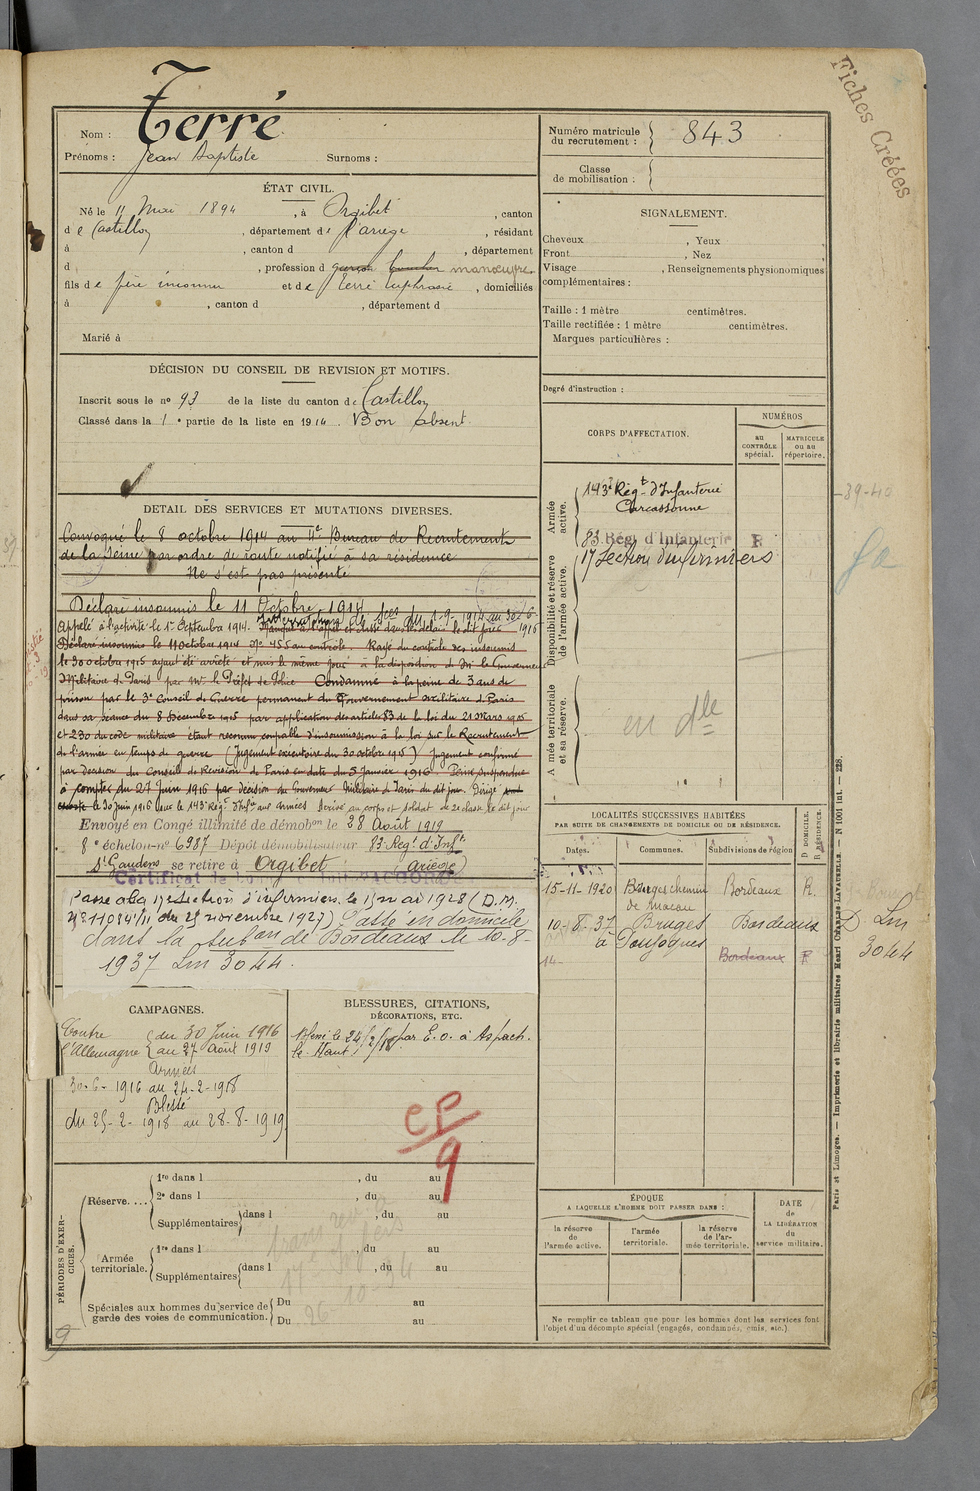 Fiches Créées
Nom : Terré
Prénoms : Jean Baptiste Surnoms :
Numéro matricule du recrutement : 843
Classe de mobilisation :
ÉTAT CIVIL.
Né le 11 Mai 1894, à Orgibet, canton
de Castillon, département de l'ariège, résidant
à , canton d , département
d , profession d garçon boucher manœuvre
fils de père inconnu et de Terré Euphrasie, domiciliés
à , canton d , département d
Marié à
SIGNALEMENT.
Cheveux , Yeux
Front , Nez
Visage , Renseignements physionomiques
complémentaires :
Taille : 1 mètre centimètres.
Taille rectifiée : 1 mètre centimètres.
Marques particulières :
Degré d'instruction :
DÉCISION DU CONSEIL DE REVISION ET MOTIFS.
Inscrit sous le nº 93 de la liste du canton de Castillon
Classé dans la 1e partie de la liste en 1914. Bon absent.
CORPS D'AFFECTATION.
NUMÉROS
au CONTRÔLE spécial.
MATRICULE ou au répertoire.
Armée active.
143e Régt d'Infanterie
Carcassonne
Disponibilité et réserve de l'armée active.
83 Régt d'Infanterie R
17 Section d'infirmiers
Armée territoriale et sa réserve.
en dle
-39-40
DÉTAIL DES SERVICES ET MUTATIONS DIVERSES.
Convoqué le 8 octobre 1914 au 4e Bureau de Recrutement
de la Seine par ordre de route notifié à sa résidence
Ne s'est pas présenté
Déclaré insoumis le 11 Octobre 1914
Interruption de ser du 1-9-1914 au 30-6-1916
Appelé à l'activité le 1er Septembre 1914. Manqué à l'appel et classé dans les délais le dit jour
Déclaré insoumis le 11 octobre 1914 Nº 455 au contrôle. Rayé du contrôle des insoumis
le 30 octobre 1915 ayant été arrêté et mis le même jour à la disposition de Mr le Gouverneur
Militaire de Paris par Mr le Préfet de Police Condamné à la peine de 3 ans de
prison par le 3e Conseil de Guerre permanent du Gouvernement militaire d Paris
dans sa séance du 8 Décembre 1915 par application des articles 83 de la loi du 21 Mars 1905
et 230 du code militaire étant reconnu coupable d'insoumission à la loi sur le Recrutement
de l'armée en temps de guerre (Jugement exécutoire du 30 octobre 1915) Jugement confirmé
par décision du Conseil de Revision de Paris en date du 5 Janvier 1916 Peine suspendue
à compter du 27 Juin 1916 par décision du Gouverneur Militaire de Paris du dit jour. Dirigé
le 30 Juin 1916 sur le 143e Régt d'Infie aux armées Arrivé au corps et soldat de 2e classe le dit jour
Envoyé en Congé illimité de démobon le 28 Août 1919
8e échelon nº 6987 Dépôt démobilisateur 83 Regt d'Infie
St Gaudens se retire à Orgibet Ariège)
Passé à la 17e section d'infirmiers le 1er mai 1928 (D.M.
Nº 11084/11 du 25 novembre 1927) Passé en domicile
dans la subon de Bordeaux le 10-8-
1937 Lm 3044.
LOCALITÉS SUCCESSIVES HABITÉES
PAR SUITE DE CHANGEMENTS DE DOMICILE OU DE RÉSIDENCE.
Dates. Communes. Subdivisions de région
D DOMICILE. R RÉSIDENCE.
15-11-1920 Bruges chemin de Macau Bordeaux R.
10-8-37 Bruges Bordeaux D Lm 3044
à Toujoques
14- Bordeaux R
CAMPAGNES.
Contre l'Allemagne du 30 Juin 1916
au 27 Août 1919
Armées
30-6-1916 au 24-2-1918
Blessé
du 25-2-1918 au 28-8-1919
BLESSURES, CITATIONS,
DÉCORATIONS, ETC.
Blessé le 24/2/18 par E. o. à Aspach.
le Haut
CP
9
PÉRIODES D'EXERCICES.
Réserve....
1re dans l , du au
2e dans l , du au
Supplémentaires dans l , du au
Armée territoriale.
1re dans l , du au
Supplémentaires dans l , du au
Spéciales aux hommes du service de garde des voies de communication.
Du au
Du au
26-10-34
9
ÉPOQUE
A LAQUELLE L'HOMME DOIT PASSER DANS :
la réserve de l'armée active.
l'armée territoriale.
la réserve de l'armée territoriale.
DATE de LA LIBÉRATION du service militaire.
Ne remplir ce tableau que pour les hommes dont les services font
l'objet d'un décompte spécial (engagés, condamnés, omis, etc.).
Paris et Limoges. — Imprimerie et librairie militaires Henri CHARLES-LAVAUZELLE. — N 1001 int. — 228.